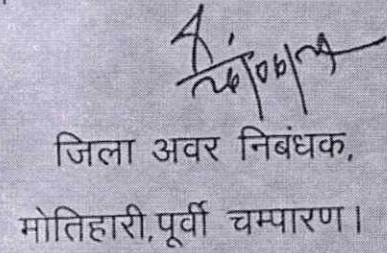 जिला अवर निबंधक,
मोतिहारी,पूर्वी चम्पारण।